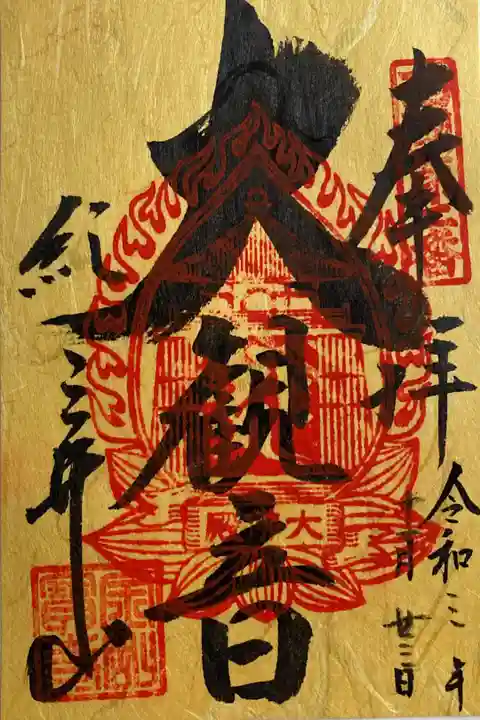 奉拝
令和三年
十一月廿三日
大観音
大殿
紀三井山